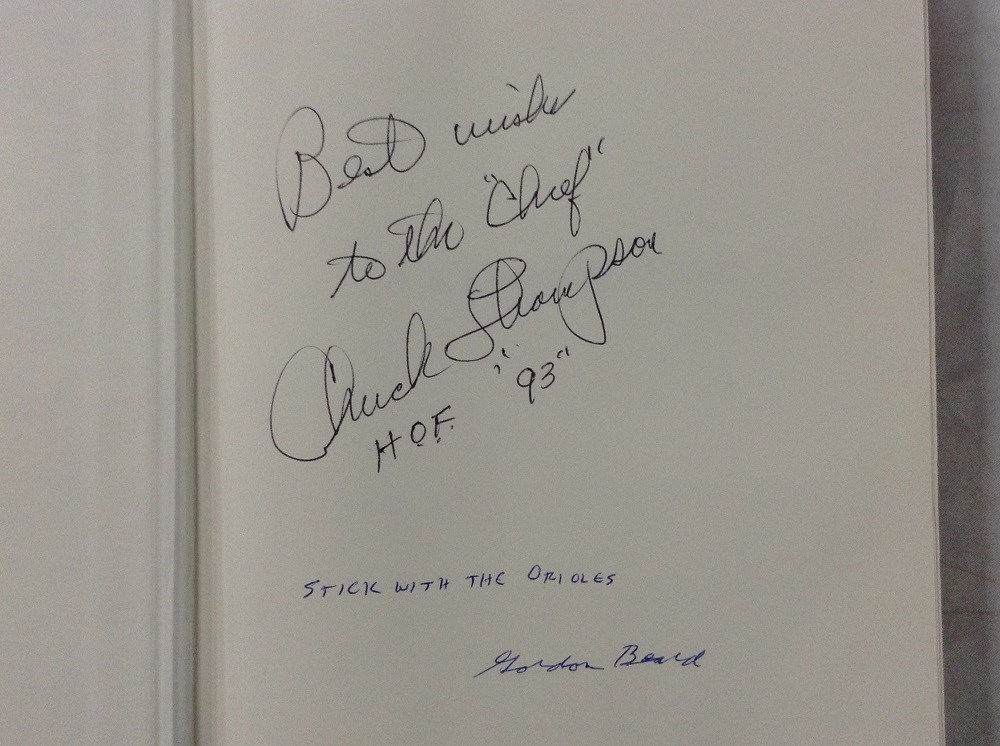 Best wishes
to the "Chief"
Chuck Thompson
H.O.F. "93"
STICK WITH THE ORIOLES
Gordon Beard